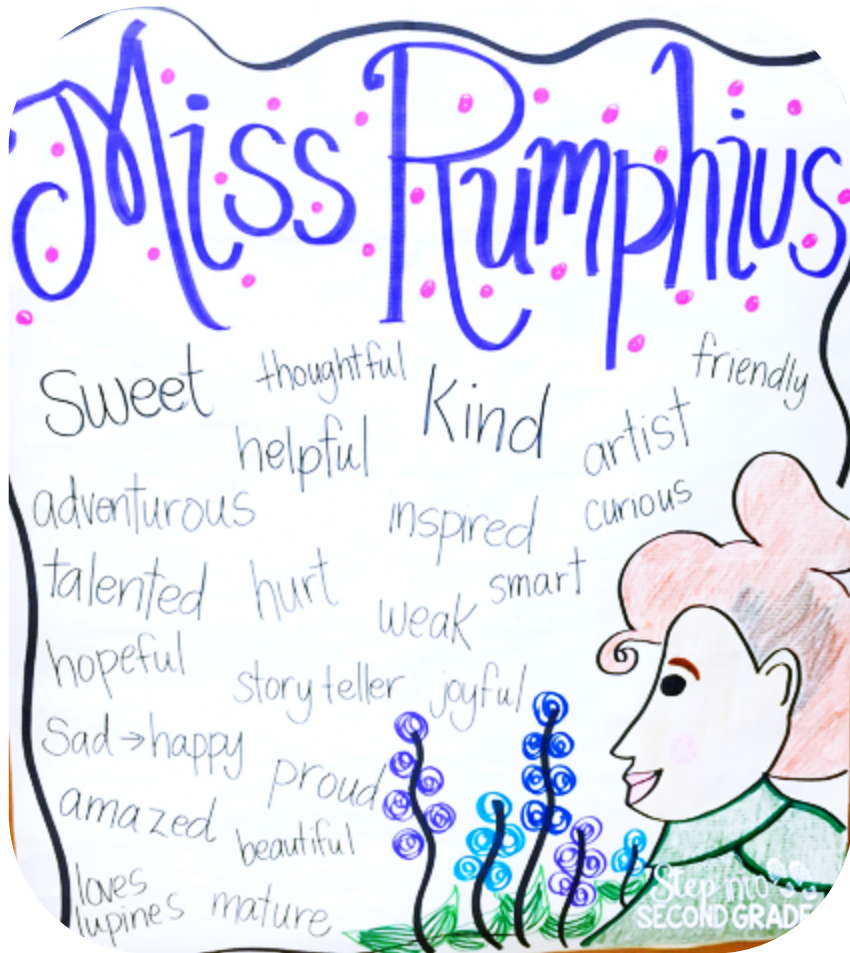 Miss Rumphius
Sweet thoughtful Kind friendly
helpful artist
adventurous inspired curious
talented hurt weak smart
hopeful story teller joyful
Sad → happy proud
amazed beautiful
loves
lupines mature
Step into
SECOND GRADE